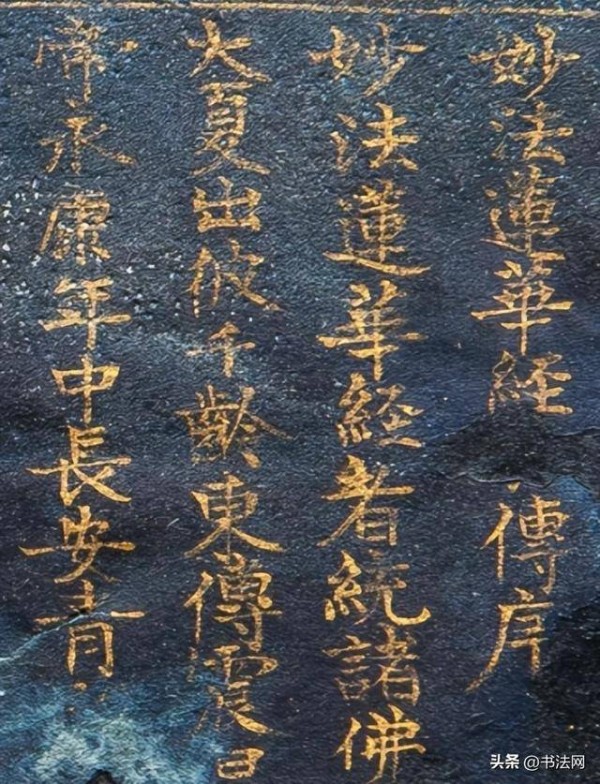 妙法蓮華經傳序
妙法蓮華經者統諸佛
大夏出彼千齡東傳震旦
帝永康年中長安青
头条 @书法网